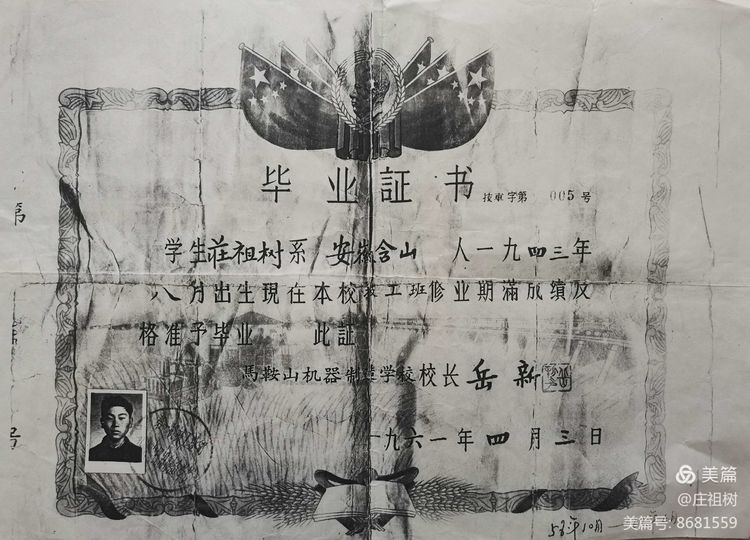 毕业証书
技車字第 005 号
学生莊祖树系 安徽含山 人一九四三年
八月出生現在本校 工班修业期滿成績及
格准予毕业 此証
馬鞍山机器制造学校校长 岳新
一九六一年四月三日
第
号
58年10月
美篇
@庄祖树
美篇号: 8681559